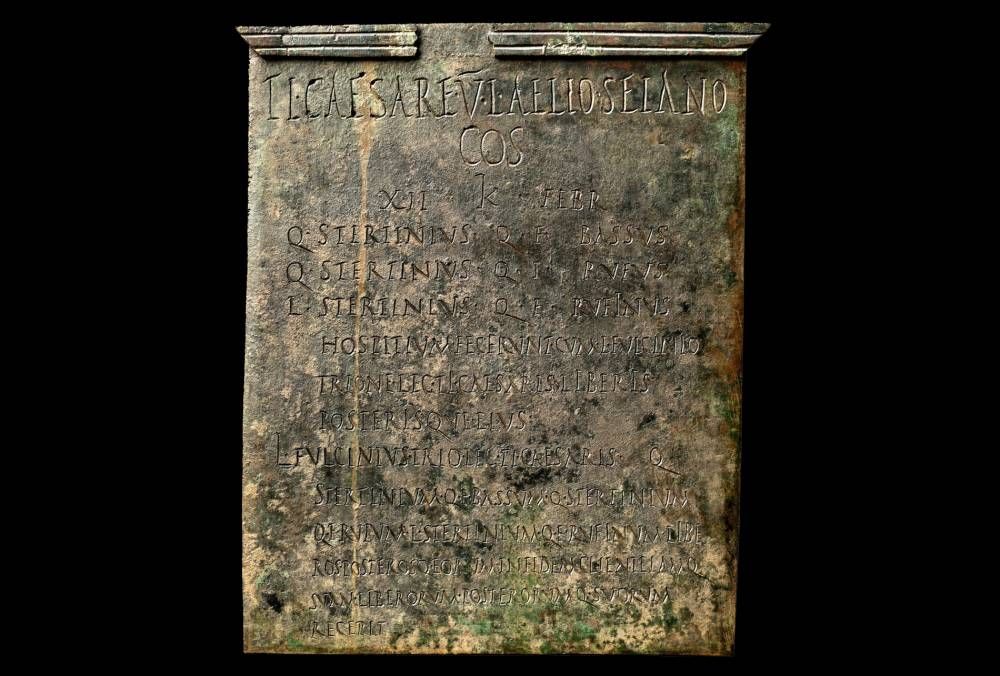 TI·CAESARE·V̅·L·AELIO·SEIANO
COS
XII · K · FEBR
Q·STERTINIUS · Q · F · BASSUS
Q·STERTINIUS · Q · F · RUFUS
L·STERTINIUS · Q · F · RUFINUS
HOSPITIUM·FECERUNT·CUM·L·FULCINIO
TRIONE·LEG·TI·CAESARIS·LIBERIS
POSTERISQ·EIUS
L·FULCINIUS·TRIO·LEG·TI·CAESARIS · Q
STERTINIUM·Q·F·BASSUM·Q·STERTINIUM
Q·F·RUFUM·L·STERTINIUM·Q·F·RUFINUM·LIBE
ROS·POSTEROSQ·EORUM·IN·FIDEM·CLIENTELAMQ
SUAM·LIBERORUM·POSTERORUMQ·SUORUM
RECEPIT